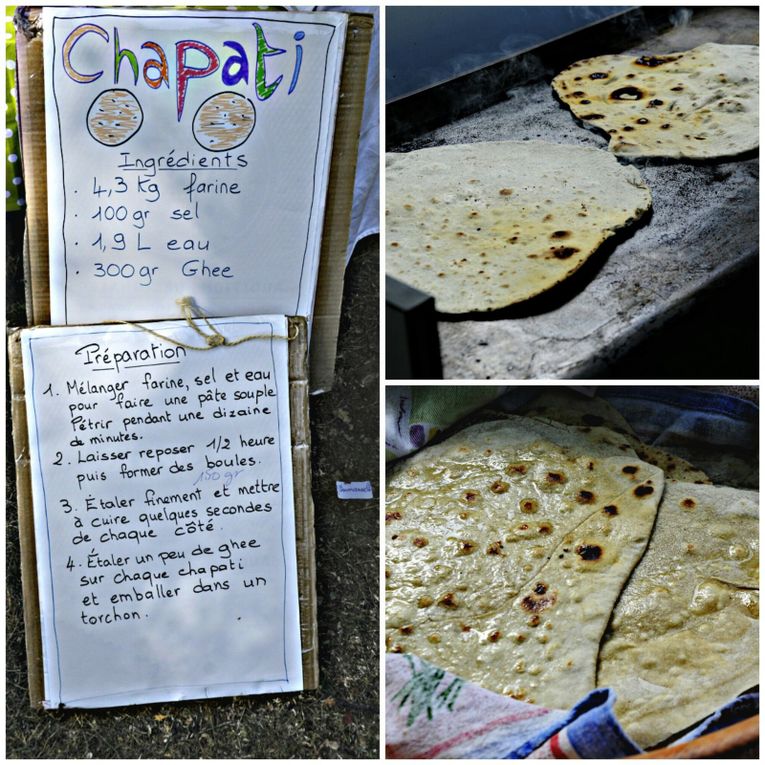 Chapati
Ingrédients
. 4,3 kg farine
. 100gr sel
. 1,9 L eau
. 300gr Ghee
Préparation
1. Mélanger farine, sel et eau
pour faire une pâte souple
Pétrir pendant une dizaine
de minutes.
2. Laisser reposer 1/2 heure
puis former des boules.
150 gr
3. Étaler finement et mettre
à cuire quelques secondes
de chaque côté.
4. Étaler un peu de ghee
sur chaque chapati
et emballer dans un
torchon.